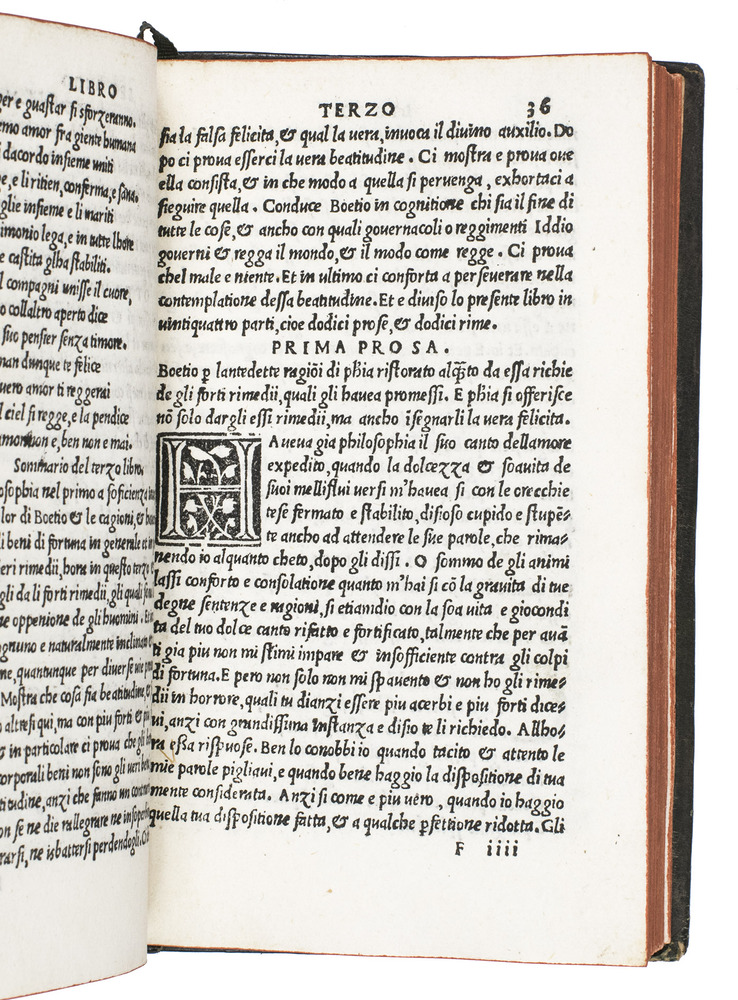 LIBRO
ger e guastar si sforzeranno.
emo amor fra giente humana
dacordo insieme uniti
e, e li ritien, conferma, e sana.
glie insieme e li mariti
imonio lega, e in tutte lhore
e castita glha stabiliti.
l compagni unisse il cuore,
o collaltro aperto dice
suo pensier senza timore.
man dunque te felice
uero amor ti reggerai
l ciel si regge, e la pendice
amor non e, ben non e mai.
Sommario del terzo libro.
osophia nel primo a soficienza
lor di Boetio & le cagioni, &
li beni di fortuna in generale et in
eri rimedii, hora in questo terzo
gli da li forti rimedii, gli quali
ne oppenione de gli huomini.
ognuno e naturalmente inclinato
ne, quantunque per diverse vie
Mostra che cosa sia beatitudine, &
o altresi qui, ma con piu forti &
& in particolare ci prova che gli
corporali beni non sono gli veri beni
titudine, anzi che fanno un
on se ne die rallegrare ne
rarsi, ne isbattersi perdendogli.
TERZO 36
sia la falsa felicita, & qual la uera, inuoca il diuino auxilio. Do
po ci proua esserci la uera beatitudine. Ci mostra e proua oue
ella consista, & in che modo a quella si peruenga, exhortaci a
sieguire quella. Conduce Boetio in cognitione chi sia il fine di
tutte le cose, & ancho con quali gouernacoli o reggimenti Iddio
gouerni & regga il mondo, & il modo come regge. Ci proua
chel male e niente. Et in ultimo ci conforta a perseuerare nella
contemplatione dessa beatitudine. Et e diuiso lo presente libro in
uintiquattro parti, cioe dodici prose, & dodici rime.
PRIMA PROSA.
Boetio ꝑ lantedette ragiõi di phia ristorato alq̃to da essa richie
de gli forti rimedii, quali gli hauea promessi. E phia si offerisce
nõ solo dargli essi rimedii, ma ancho ĩsegnarli la uera felicita.
HAueua gia philosophia il suo canto dellamore
expedito, quando la dolcezza & soauita de
suoi melliflui uersi m'hauea si con le orecchie
tese fermato e stabilito, disioso cupido e stupẽ-
te ancho ad attendere le sue parole, che rima-
nendo io alquanto cheto, dopo gli dissi. O sommo de gli animi
lassi conforto e consolatione quanto m'hai si cõ la grauita di tue
degne sentenze e ragioni, si etiamdio con la soa uita e giocondi
ta del tuo dolce canto rifatto e fortificato, talmente che per auã
ti gia piu non mi stimi impare & insofficiente contra gli colpi
di fortuna. E pero non solo non mi spauento & non ho gli rime-
dii in horrore, quali tu dianzi essere piu acerbi e piu forti dices-
ui, anzi con grandissima instanza e disio te li richiedo. Allho-
ra essa rispuose. Ben lo conobbi io quando tacito & attento le
mie parole pigliaui, e quando bene haggio la dispositione di tua
mente considerata. Anzi si come e piu uero, quando io haggio
quella tua dispositione fatta, & a qualche ꝑfettione ridotta. Gli
F iiii